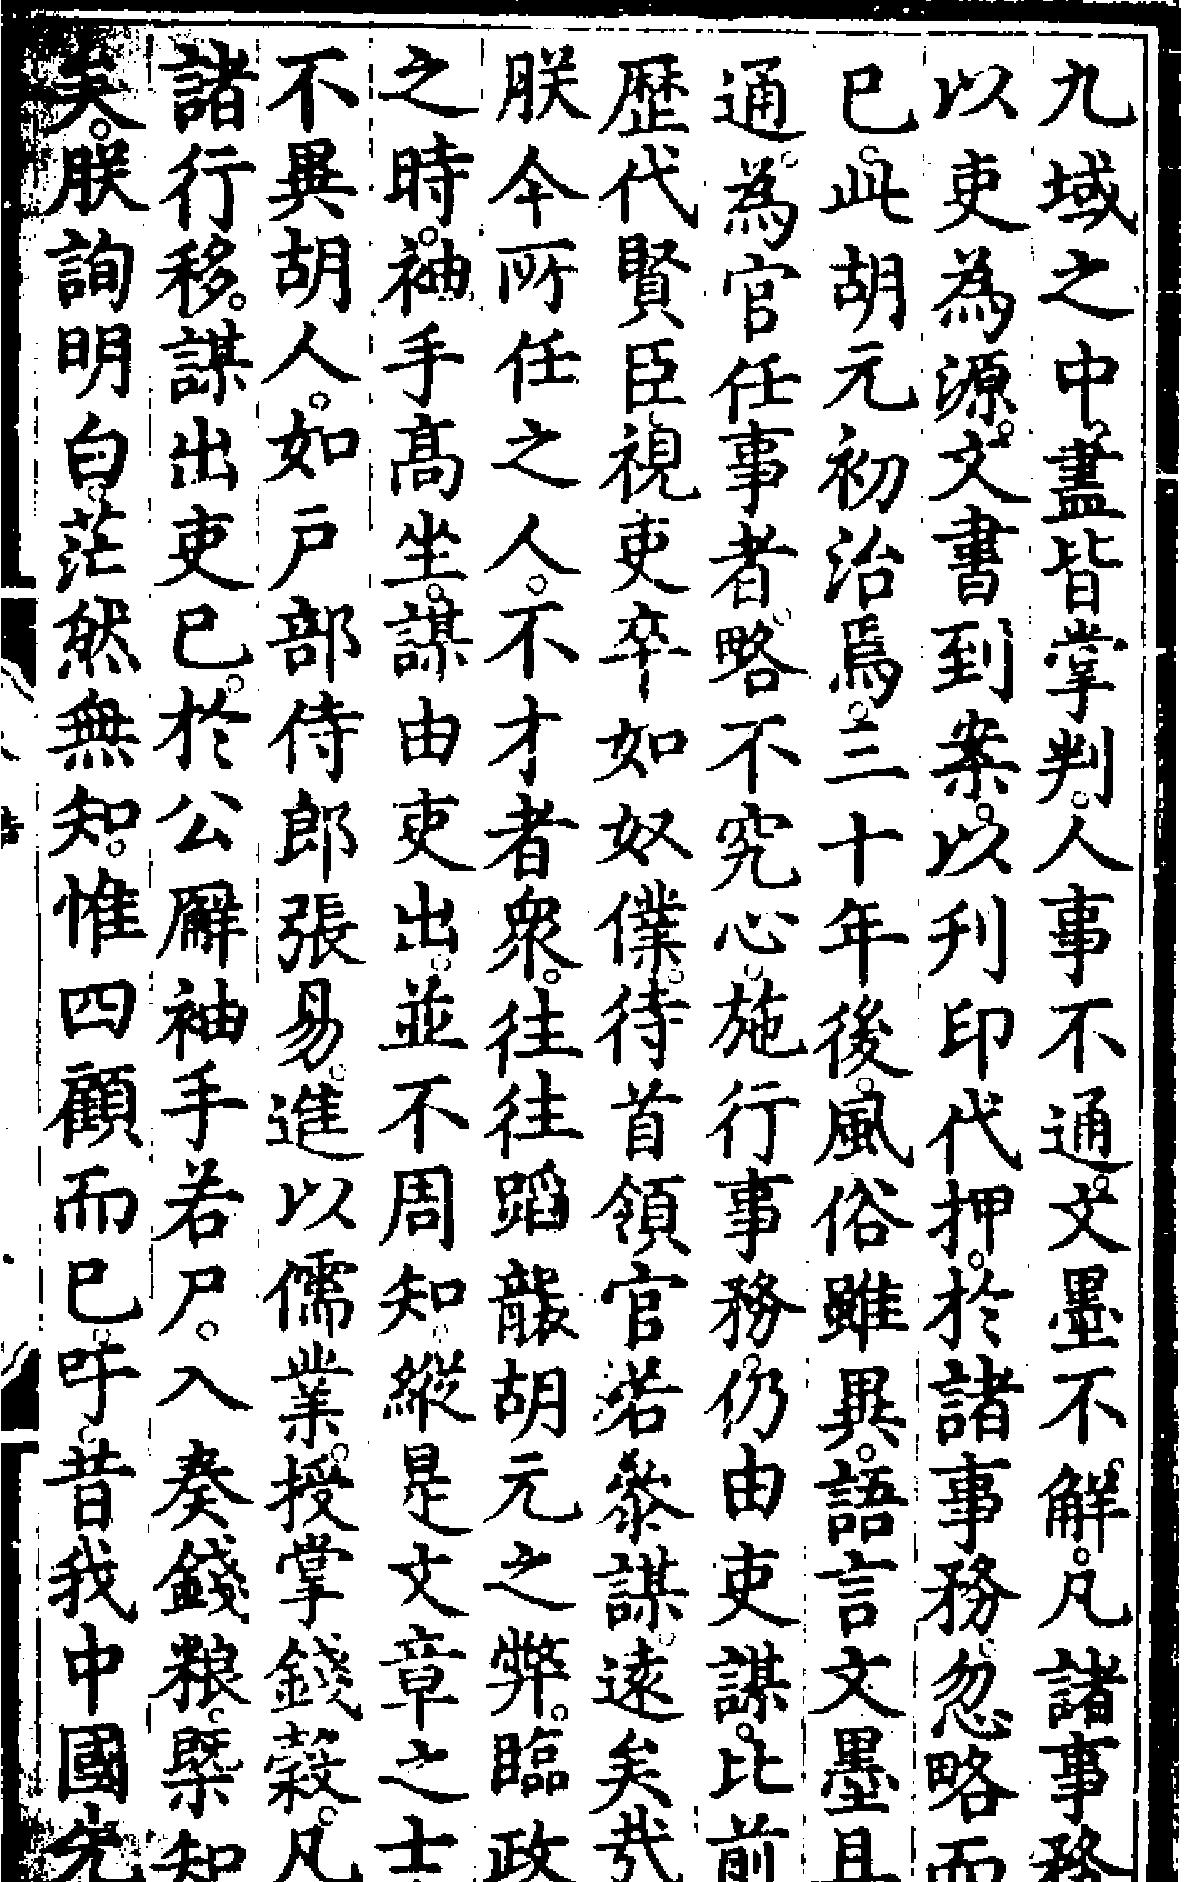 九域之中盡皆掌判人事不通文墨不解凡諸事務
以吏為源文書到案以刋印代押於諸事務忽略而
已此胡元初治焉三十年後風俗雖異語言文墨且
通為官任事者略不究心施行事務仍由吏謀比前
歷代賢臣視吏卒如奴僕待首領官若叅謀遠矣哉
朕今所任之人不才者衆往往蹈襲胡元之弊臨政
之時袖手高坐謀由吏出並不周知縱是文章之士
不異胡人如戶部侍郎張易進以儒業授掌錢穀凡
諸行移謀出吏已於公廨袖手若尸入奏錢粮槩知
矣朕詢明白茫然無知惟四顧而已吁昔我中國先